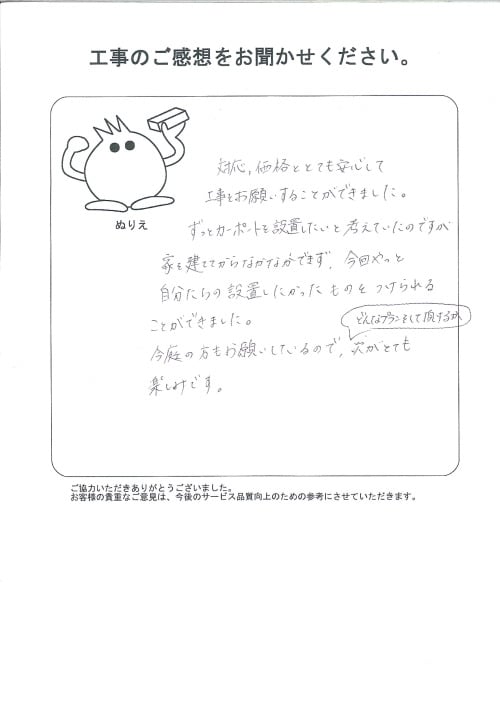 工事のご感想をお聞かせください。
ぬりえ
対応,価格ととても安心して
工事をお願いすることができました。
ずっとカーポートを設置したいと考えていたのですが
家を建ててからなかなかできず、今回やっと
自分たちの設置したかったものをつけられる
ことができました。
どんなプランをして頂けるか、
今庭の方もお願いしているので、次がとても
楽しみです。
ご協力いただきありがとうございました。
お客様の貴重なご意見は、今後のサービス品質向上のための参考にさせていただきます。